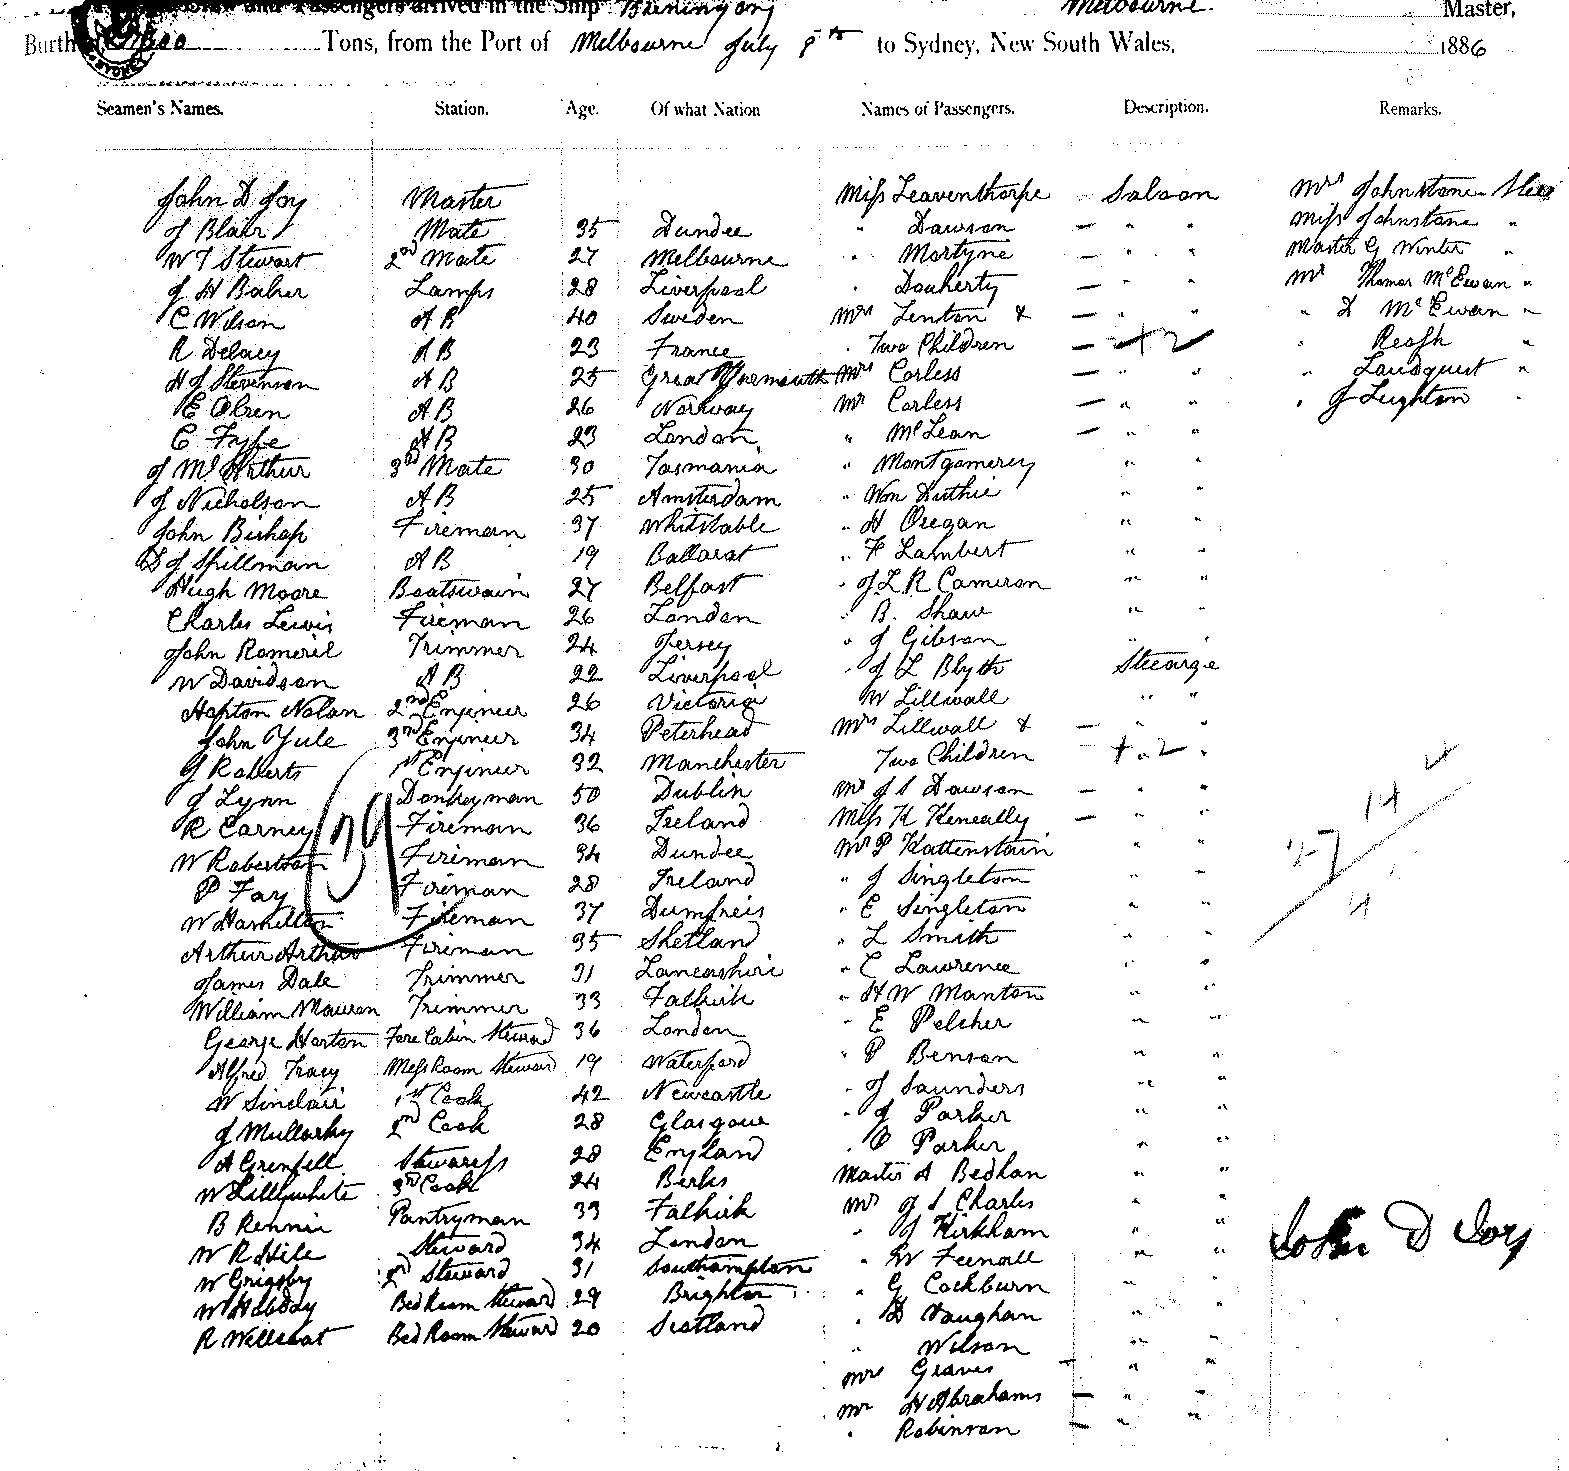 and Passengers arrived in the Ship Buninyong Melbourne. Master,
Tons, from the Port of Melbourne July 8th to Sydney, New South Wales, 1886
Seamen's Names. Station. Age. Of what Nation Names of Passengers. Description. Remarks.
John D Joy Master Miss Leaventhorpe Saloon Mrs Johnstone
J Blair Mate 35 Dundee " Dawson — " " Miss Johnstone "
W T Stewart 2nd Mate 27 Melbourne " Martyne — " " Master G Winter "
J H Baker Lamps 28 Liverpool " Doherty — " " Mr Thomas McEwan "
C Wilson A B 40 Sweden Mrs Lenton & — " " " D McEwan "
R Delacy A B 23 France " Two Children — + 2 "
H J Stevenson A B 25 Great Yarmouth Mrs Corless — " " " Landquist "
E Olsen A B 26 Norway Mr Corless — " " " J Leighton "
C Fyffe A B 23 London " McLean — " "
J McArthur 3rd Mate 30 Tasmania " Montgomerey " "
J Nicholson A B 25 Amsterdam " Wm Duthie " "
John Bishop Fireman 37 Whitstable " H Oregan " "
D J Spillman A B 19 Ballarat " F Lambert " "
Hugh Moore Boatswain 27 Belfast " J L R Cameron " "
Charles Lewis Fireman 26 London " B. Shaw " "
John Romeril Trimmer 24 Jersey " J Gibson " "
W Davidson A B 22 Liverpool " J L Blyth Stearge
Hopton Nolan 2nd Engineer 26 Victoria " W Lillwall " "
John Yule 3rd Engineer 34 Peterhead Mrs Lillwall & — "
G Roberts 1st Engineer 32 Manchester Two Children — + 2 "
J Lynn Donkeyman 50 Dublin Mr J S Dawson — " "
R Carney Fireman 36 Ireland Miss K Keneally — " "
W Robertson Fireman 34 Dundee Mr P Kattenstain " "
P Fay Fireman 28 Ireland " J Singleton " "
W Hamilton Fireman 37 Dumfreis " E Singleton " "
Arthur Arthur Fireman 35 Shetland " L Smith " "
James Dale Trimmer 31 Lancashire " C Lawrence " "
William Mawson Trimmer 33 Falkirk " H W Manton " "
George Horton Fore Cabin Steward 36 London " E Pelcher " "
Alfred Tracy Mess Room Steward 19 Waterford " P Benson " "
W Sinclair 1st Cook 42 Newcastle " J Saunders " "
J Mullarky 2nd Cook 28 Glasgow " J Parker " "
A Grenfell Stewardess 28 England " C Parker " "
W Lillywhite 3rd Cook 24 Berks Master A Bedhan " "
B Rennie Pantryman 33 Falkirk Mr J S Charles " "
W R Hile Steward 34 London " J Kirkham " "
W Grigsby 2nd Steward 31 Southampton " W Feenall " "
W Hobday Bed Room Steward 29 Brighton " G Cockburn " "
R Willcoat Bed Room Steward 20 Scotland " D Vaughan " "
" Wilson " "
Mrs Graves — " "
Mr H Abrahams — " "
" Robinson — " "
39
27 / 14
14
John D Joy